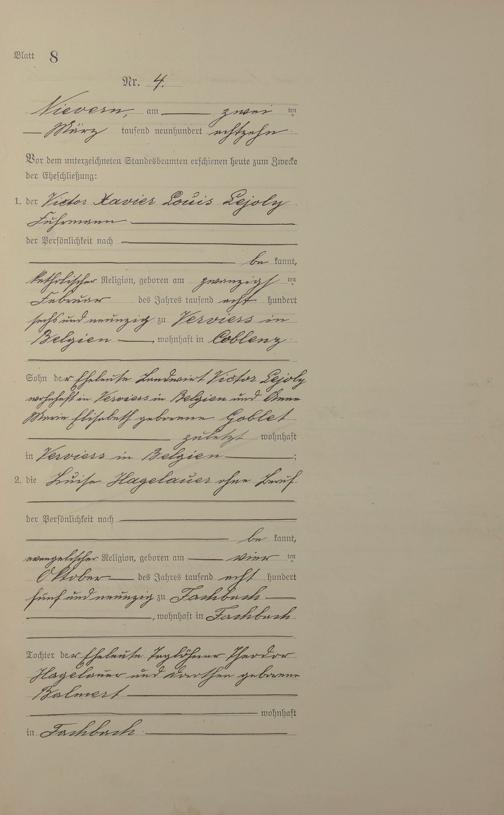 Blatt 8
Nr. 4.
Nievern, am zwei ten
März tausend neunhundert achtzehn
Vor dem unterzeichneten Standesbeamten erschienen heute zum Zwecke
der Eheschließung:
1. der Victor Xavier Louis Lejoly
Fuhrmann
der Persönlichkeit nach
be kannt,
katholischer Religion, geboren am zwanzigs ten
Februar des Jahres tausend acht hundert
sechs und neunzig zu Verviers in
Belgien, wohnhaft in Coblenz
Sohn der Eheleute Landwirt Victor Lejoly
wohnhaft in Verviers in Belgien und Anna
Maria Elisabeth geborene Goblet
zuletzt wohnhaft
in Verviers in Belgien ;
2. die Luise Hagelauer ohne Beruf
der Persönlichkeit nach
be kannt,
evangelischer Religion, geboren am vier ten
Oktober des Jahres tausend acht hundert
fünf und neunzig zu Fachbach
, wohnhaft in Fachbach
Tochter der Eheleute Taglöhner Theodor
Hagelauer und geborene
wohnhaft
in Fachbach